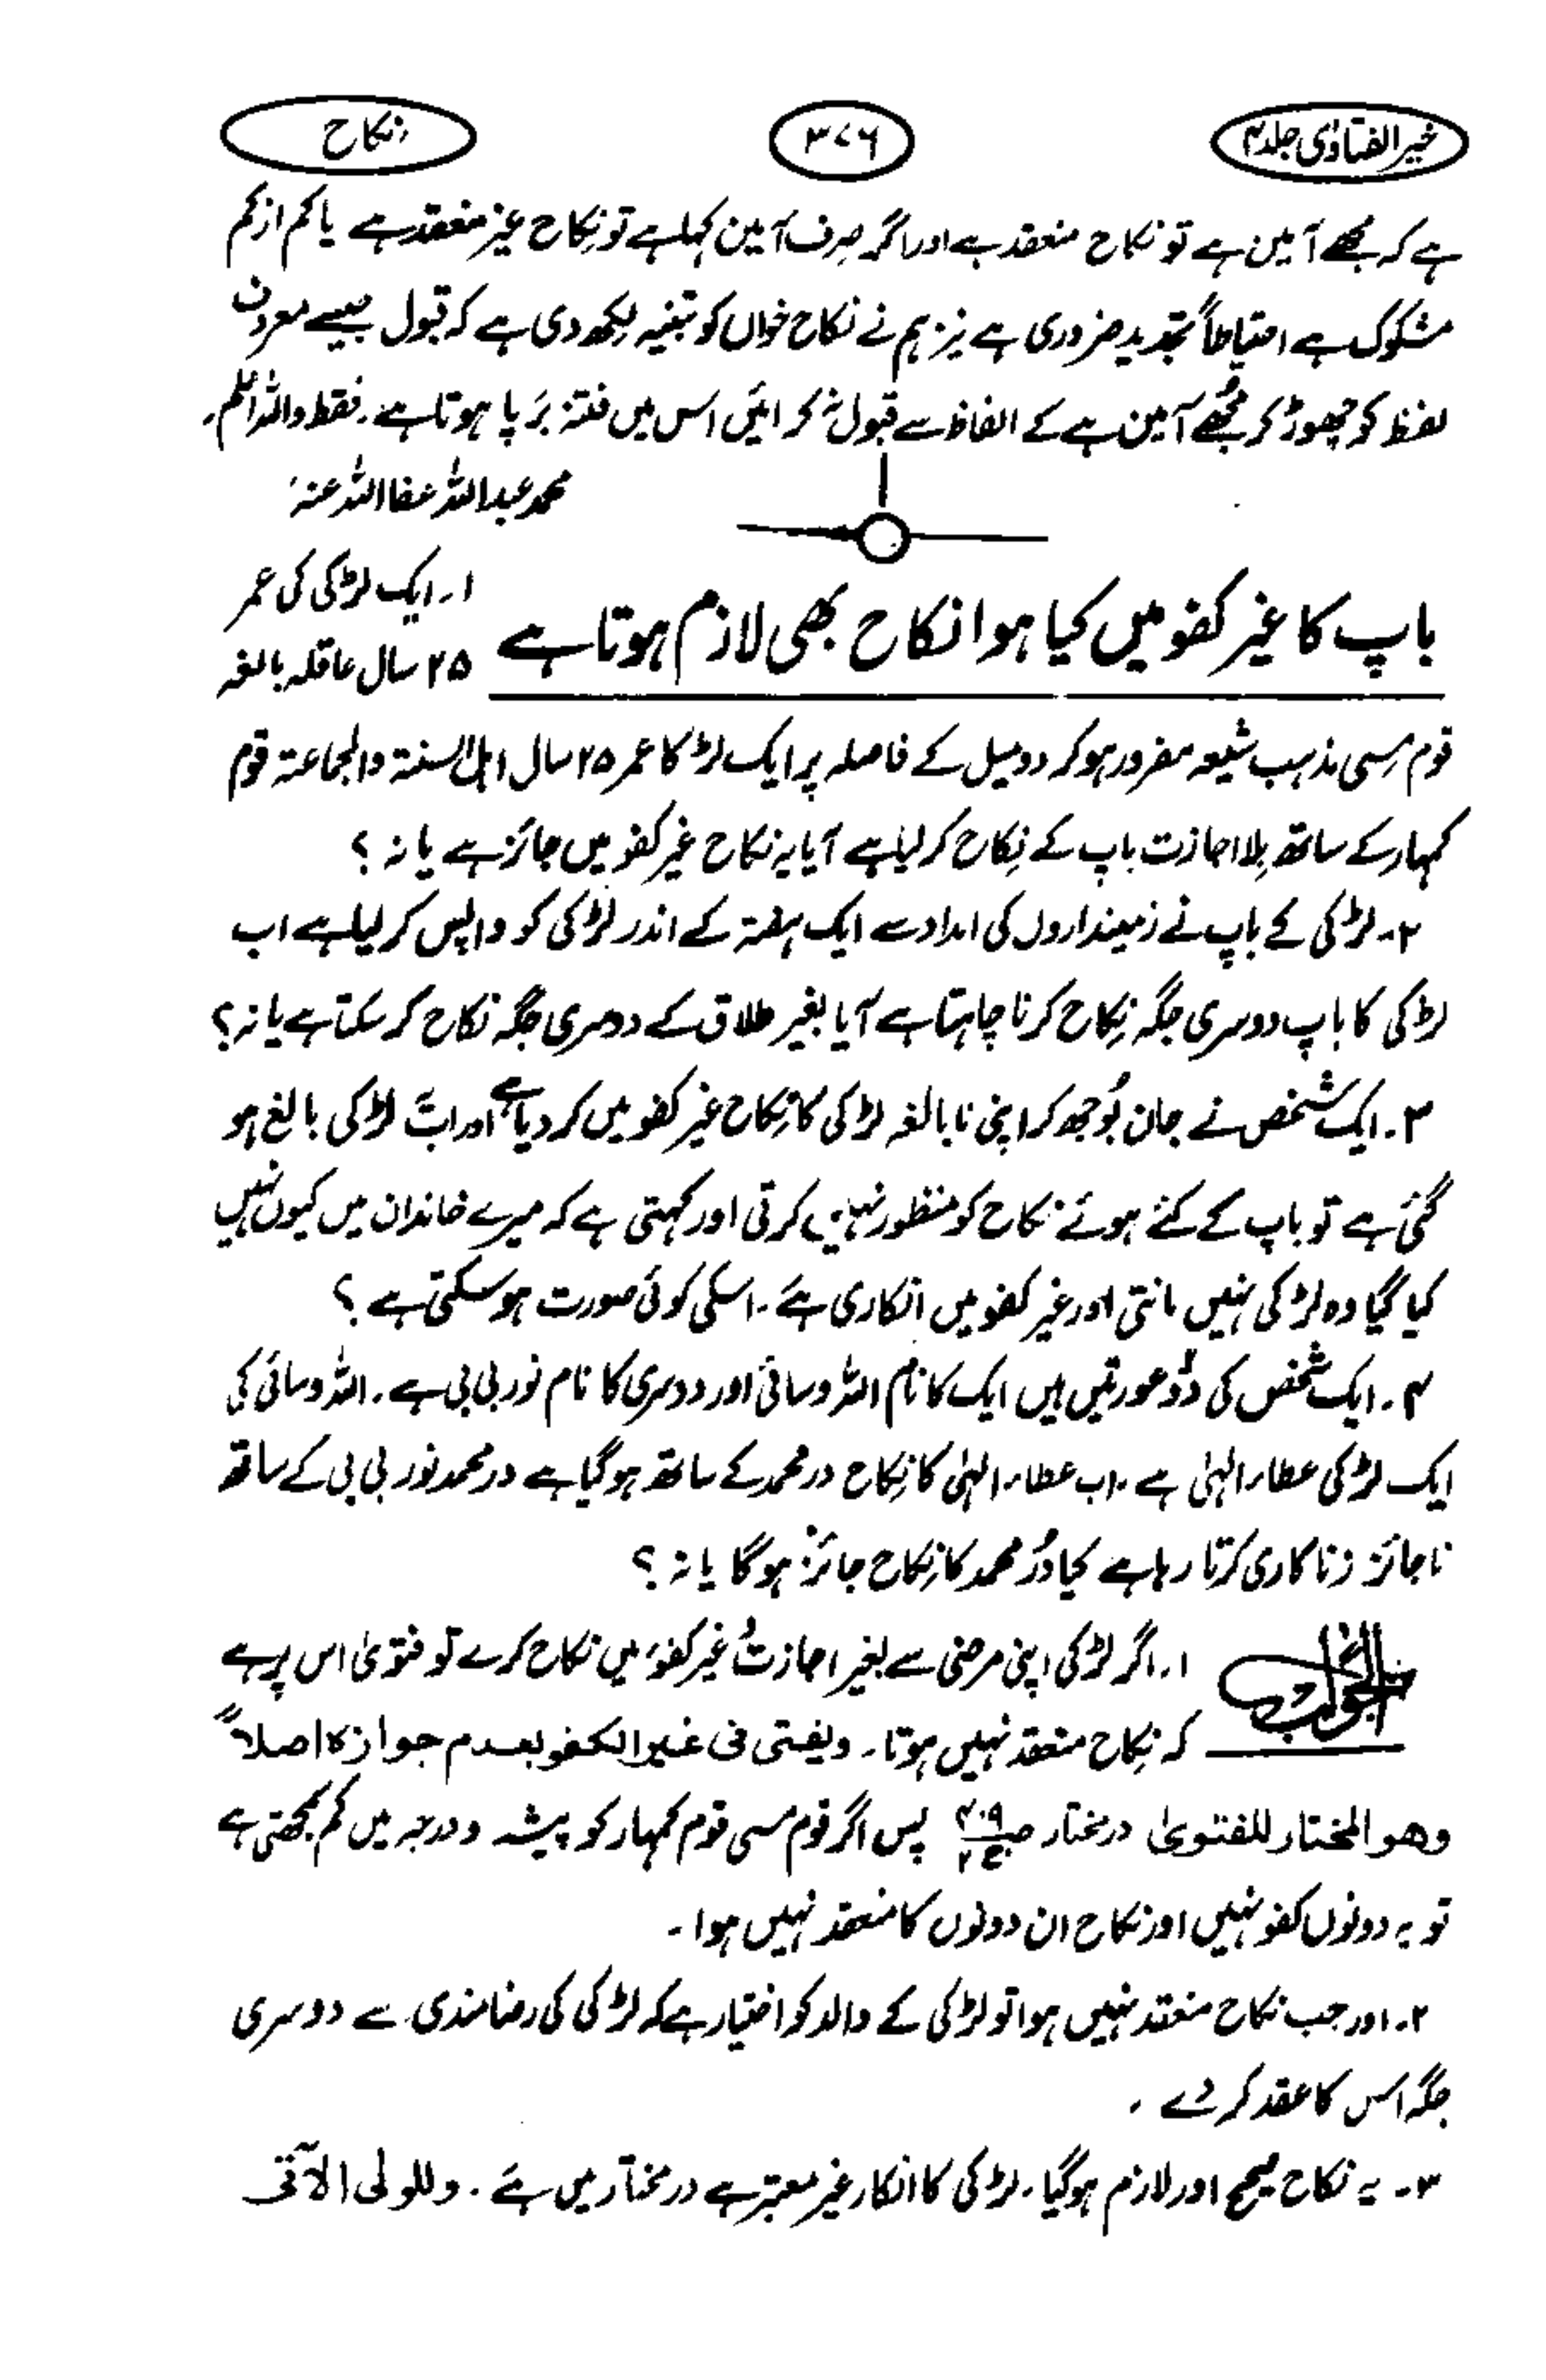 خیر الفتاوٰی جلد ۴
۳۷۶
نکاح
ہے کہ مجھے آمین ہے تو نکاح منعقد ہے اور اگر صرف آمین کہا ہے تو نکاح غیر منعقد ہے یا کم از کم
مشکوک ہے احتیاطاً تجدید ضروری ہے نیز ہم نے نکاح خواں کو تنبیہ لکھ دی ہے کہ قبول جیسے معروف
لفظ کو چھوڑ کر مجھے آمین ہے کے الفاظ سے قبول نہ کرائیں اس میں فتنہ بَرپا ہوتا ہے۔ فقط واللہ اعلم۔
محمد عبداللہ عفا اللہ عنہ،
باپ کا غیر کفو میں کیا ہوا نکاح بھی لازم ہوتا ہے
۱۔ ایک لڑکی کی عمر
۲۵ سال عاقلہ بالغہ
قوم مسی مذہب شیعہ مفرور ہو کر دو میل کے فاصلہ پر ایک لڑکا عمر ۲۵ سال اہل السنۃ والجماعۃ قوم
کمہار کے ساتھ بلا اجازت باپ کے نکاح کر لیا ہے آیا یہ نکاح غیر کفو میں جائز ہے یا نہ ؟
۲۔ لڑکی کے باپ نے زمینداروں کی امداد سے ایک ہفتہ کے اندر لڑکی کو واپس کر لیا ہے اب
لڑکی کا باپ دوسری جگہ نکاح کرنا چاہتا ہے آیا بغیر طلاق کے دوسری جگہ نکاح کر سکتا ہے یا نہ ؟
۳۔ ایک شخص نے جان بُوجھ کر اپنی نابالغہ لڑکی کا نکاح غیر کفو میں کر دیا ہے اور اب لڑکی بالغ ہو
گئی ہے تو باپ کے کئے ہوئے نکاح کو منظور نہیں کرتی اور کہتی ہے کہ میرے خاندان میں کیوں نہیں
کیا گیا وہ لڑکی نہیں مانتی اور غیر کفو میں انکاری ہے۔ اسکی کوئی صورت ہو سکتی ہے ؟
۴۔ ایک شخص کی دو عورتیں ہیں ایک کا نام اللہ وسائی اور دوسری کا نام نور بی بی ہے۔ اللہ وسائی کی
ایک لڑکی عطاء الہٰی ہے۔ اب عطاء الہٰی کا نکاح در محمد کے ساتھ ہو گیا ہے در محمد نور بی بی کے ساتھ
ناجائز زنا کاری کرتا رہا ہے کیا دُر محمد کا نکاح جائز ہو گا یا نہ ؟
الجواب
۱۔ اگر لڑکی اپنی مرضی سے بغیر اجازت غیر کفوء میں نکاح کرے تو فتویٰ اس پر ہے
کہ نکاح منعقد نہیں ہوتا۔ ویفتی فی غیر الکفو بعدم جوازہ اصلاً
وھو المختار للفتویٰ درمختار ص۴۰۹ ج۲ پس اگر قوم مسی قوم کمہار کو پیشہ و درجہ میں کم سمجھتی ہے
تو یہ دونوں کفو نہیں اور نکاح ان دونوں کا منعقد نہیں ہوا۔
۲۔ اور جب نکاح منعقد نہیں ہوا تو لڑکی کے والد کو اختیار ہے کہ لڑکی کی رضامندی سے دوسری
جگہ اس کا عقد کر دے۔
۳۔ یہ نکاح صحیح اور لازم ہو گیا۔ لڑکی کا انکار غیر معتبر ہے درمختار میں ہے۔ وللولی الآتی